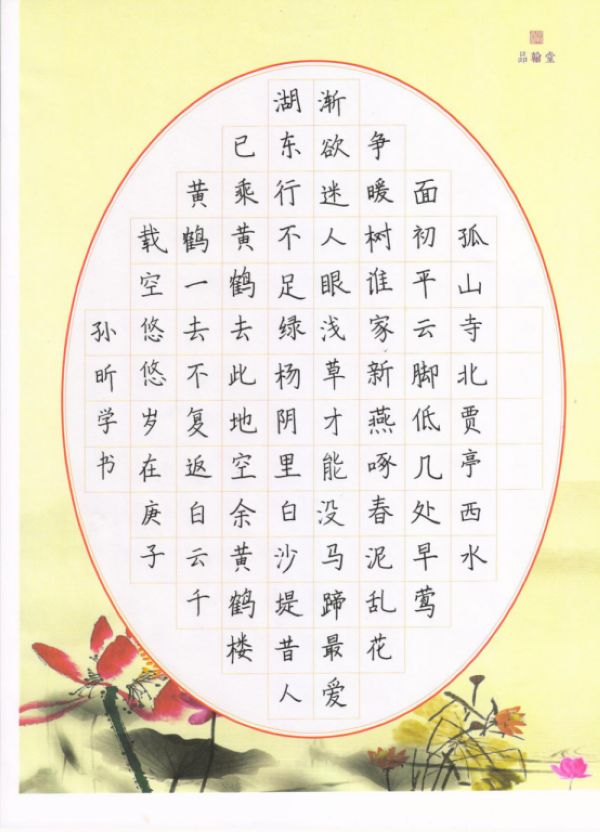 品翰堂
孤山寺北贾亭西水
面初平云脚低几处早莺
争暖树谁家新燕啄春泥乱花
渐欲迷人眼浅草才能没马蹄最爱
湖东行不足绿杨阴里白沙堤昔人
已乘黄鹤去此地空余黄鹤楼
黄鹤一去不复返白云千
载空悠悠岁在庚子
孙昕学书